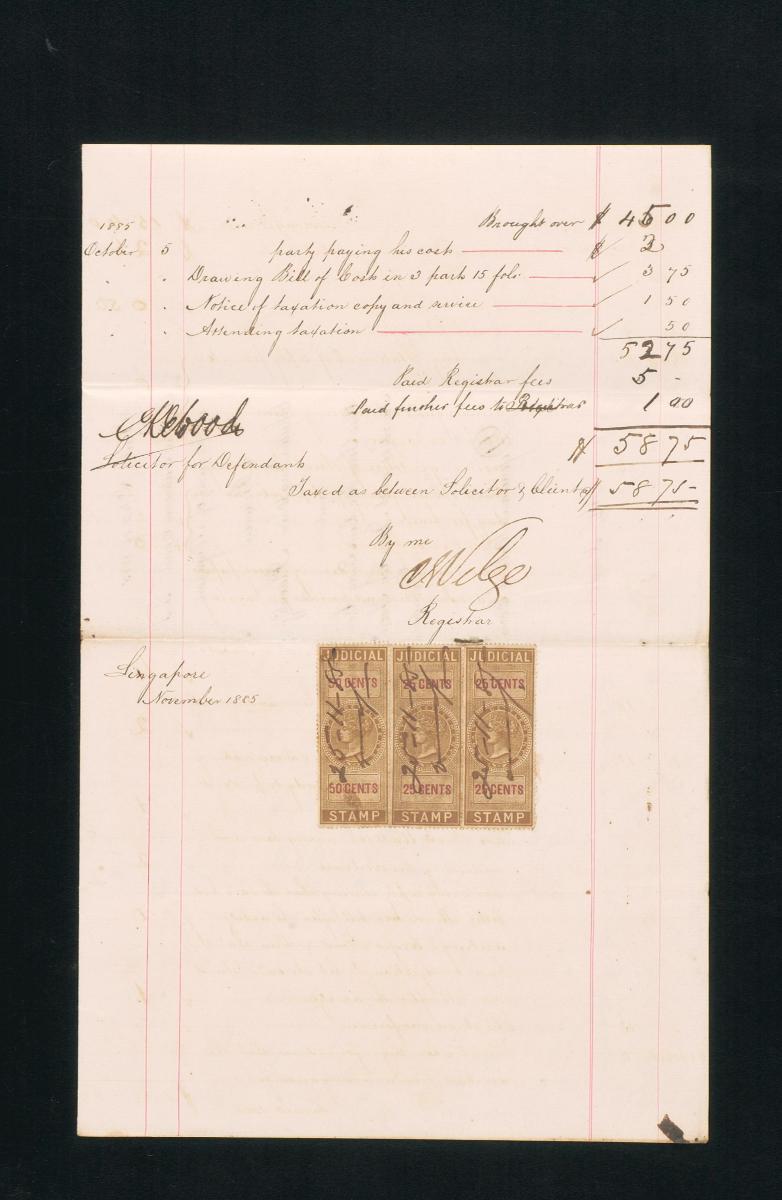 1885 Brought over $ 45 00
October 5 party paying his cost $ 2
" " Drawing Bill of Cost in 3 parts 15 folo. 3 75
" " Notice of taxation copy and service 1 50
" " Attending taxation 50
52 75
Paid Registrar fees 5 -
Paid further fees to Registrar 1 00
$ 58 75
Solicitor for Defendants
Taxed as between Solicitor & Client $ 58 75-
By me
Registrar
Singapore
November 1885
JUDICIAL JUDICIAL JUDICIAL
50 CENTS 25 CENTS 25 CENTS
25-11-85 25-11-85 25-11-85
50 CENTS 25 CENTS 25 CENTS
STAMP STAMP STAMP